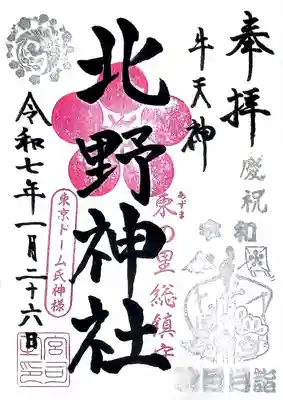 奉拝
牛天神
慶祝
令和
北野神社
あずま
東の里総鎮守
令和七年一月二十六日
東京ドーム氏神様
初詣